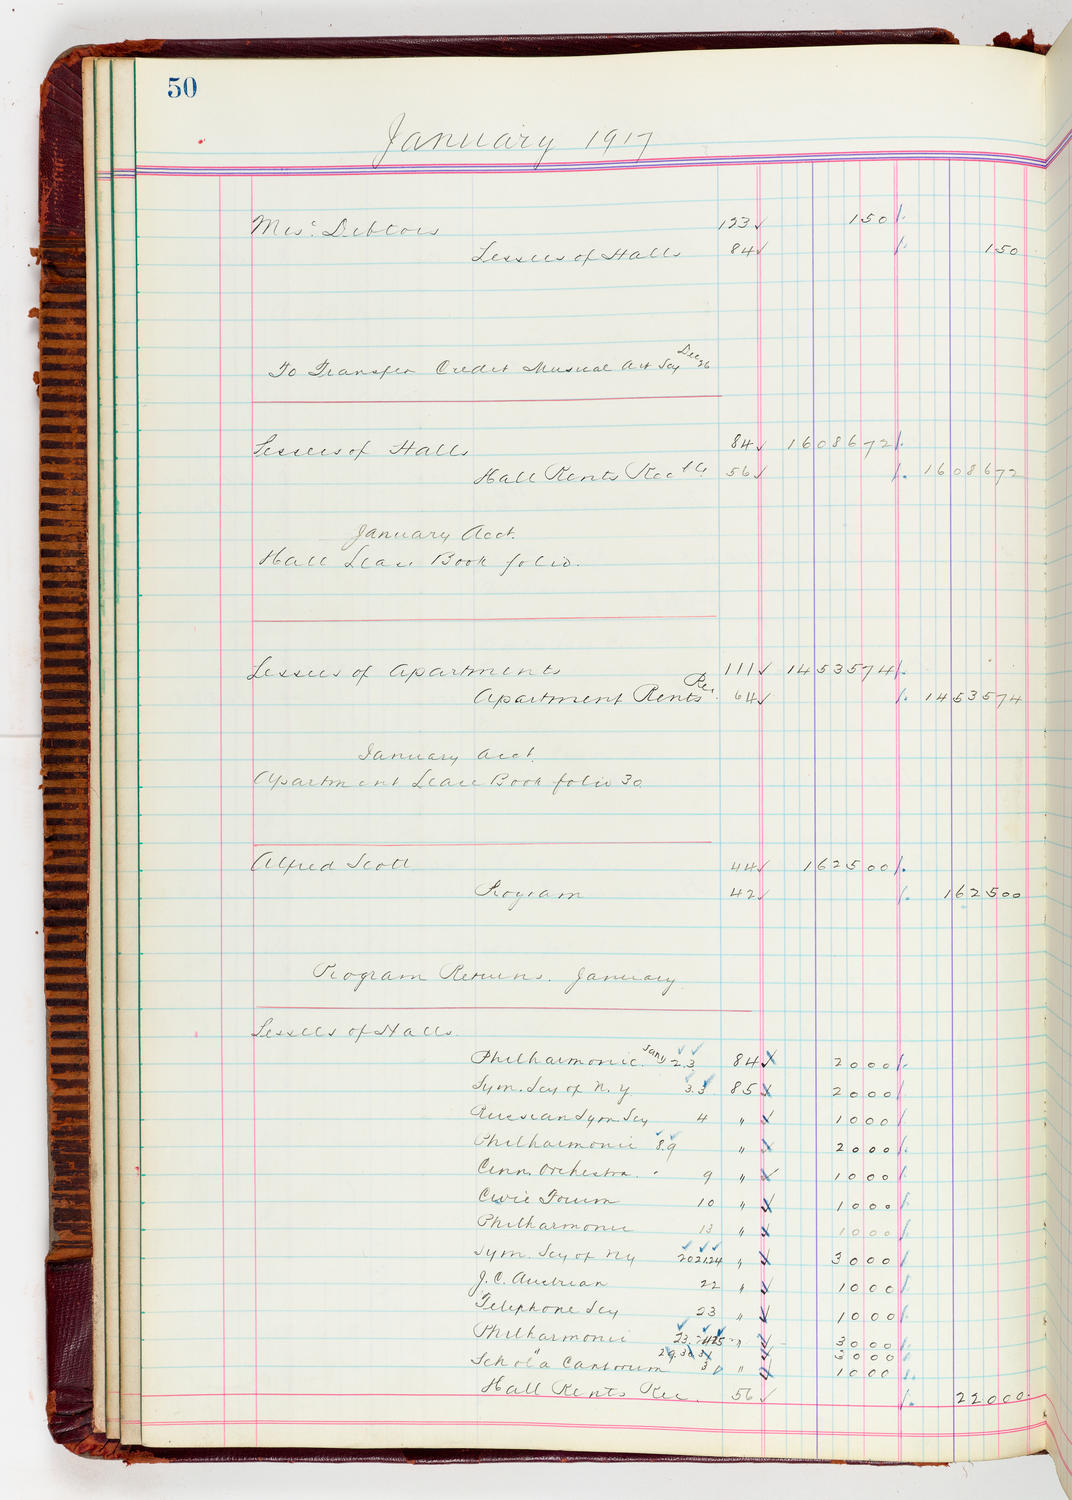 50
January 1917
Misc. Debtors 123 150
Lessees of Halls 84 150
To Transfer Credit Musical Art Scy Dec 26
Lessees of Halls 84 1608672
Hall Rents Rec 56 1608672
January Acct.
Hall Lease Book folio.
Lessees of Apartments 111 1453574
Apartment Rents Rec. 64 1453574
January Acct.
Apartment Lease Book folio 30
Alfred Scott 44 162500
Program 42 162500
Program Returns. January
Lessees of Halls
Philharmonic. Jany 2.3 84 2000
Sym. Scy of N.Y. 3.3 85 2000
Russian Sym Scy 4 " 1000
Philharmonic 8.9 " 2000
Cinn. Orchestra. 9 " 1000
Civic Forum 10 " 1000
Philharmonic 13 " 1000
Sym. Scy of NY 20 21 24 " 3000
J.C. Austrian 22 " 1000
Telephone Scy 23 " 1000
Philharmonic 23. " 3000
29. 3000
Schola Cantorum " 1000
Hall Rents Rec. 56 22000